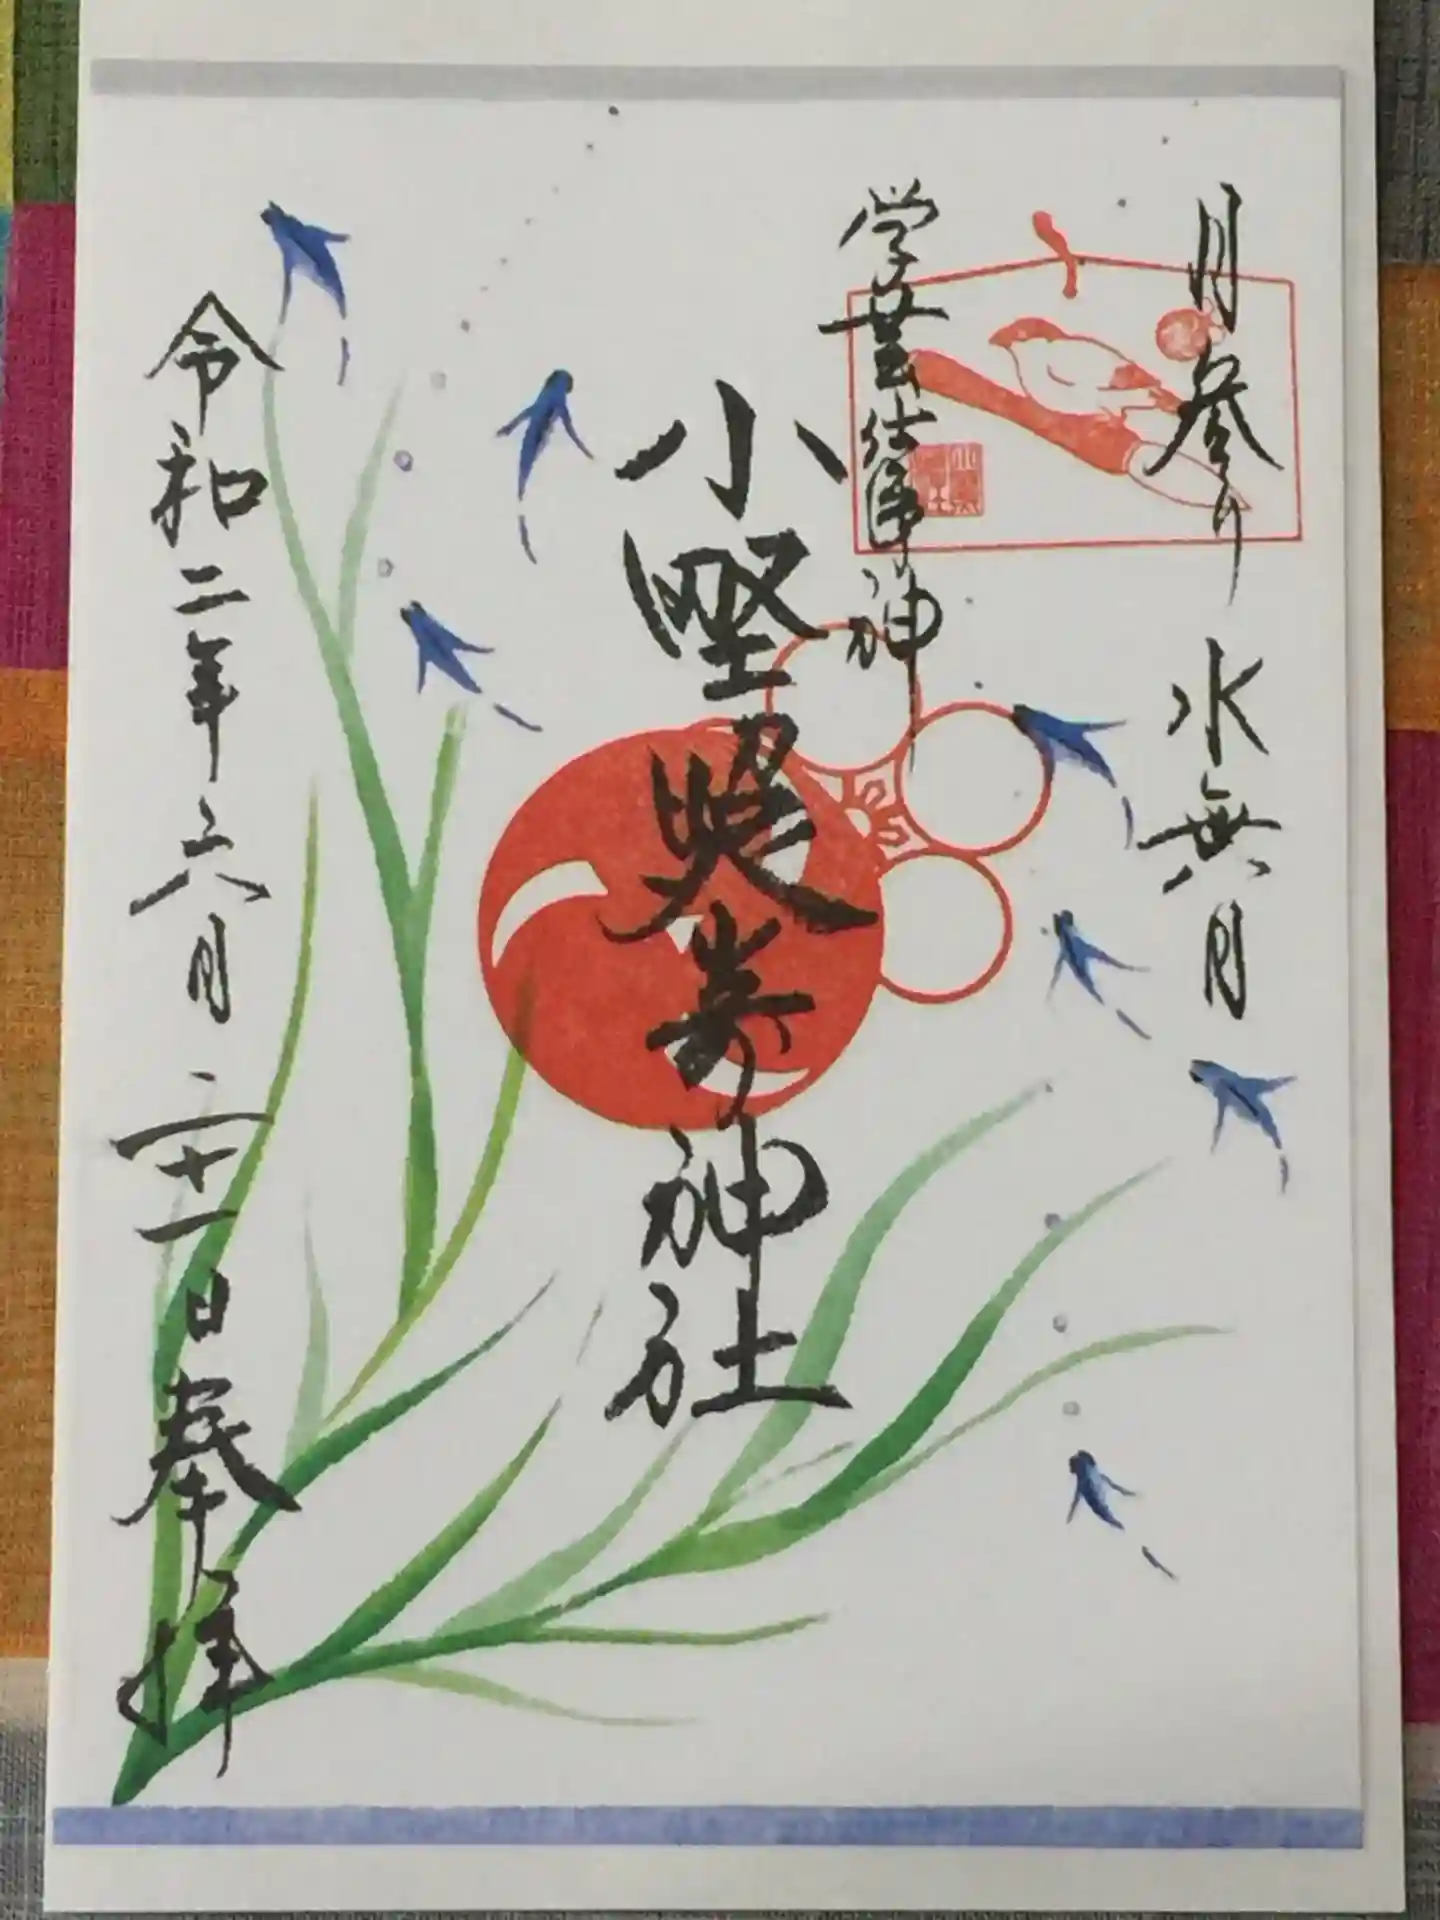 月参り 水無月
学芸仕事神
小野照崎神社
令和二年六月二十一日奉拝